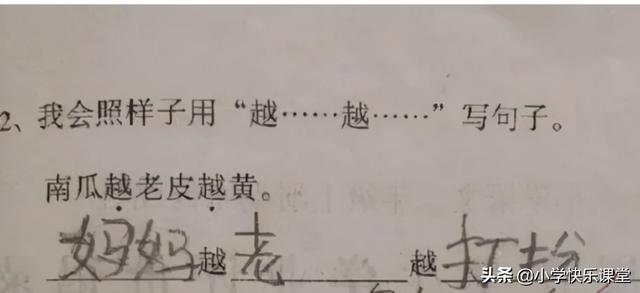 2、我会照样子用“越……越……”写句子。
南瓜越老皮越黄。
妈妈越老越打扮
头条 @小学快乐课堂